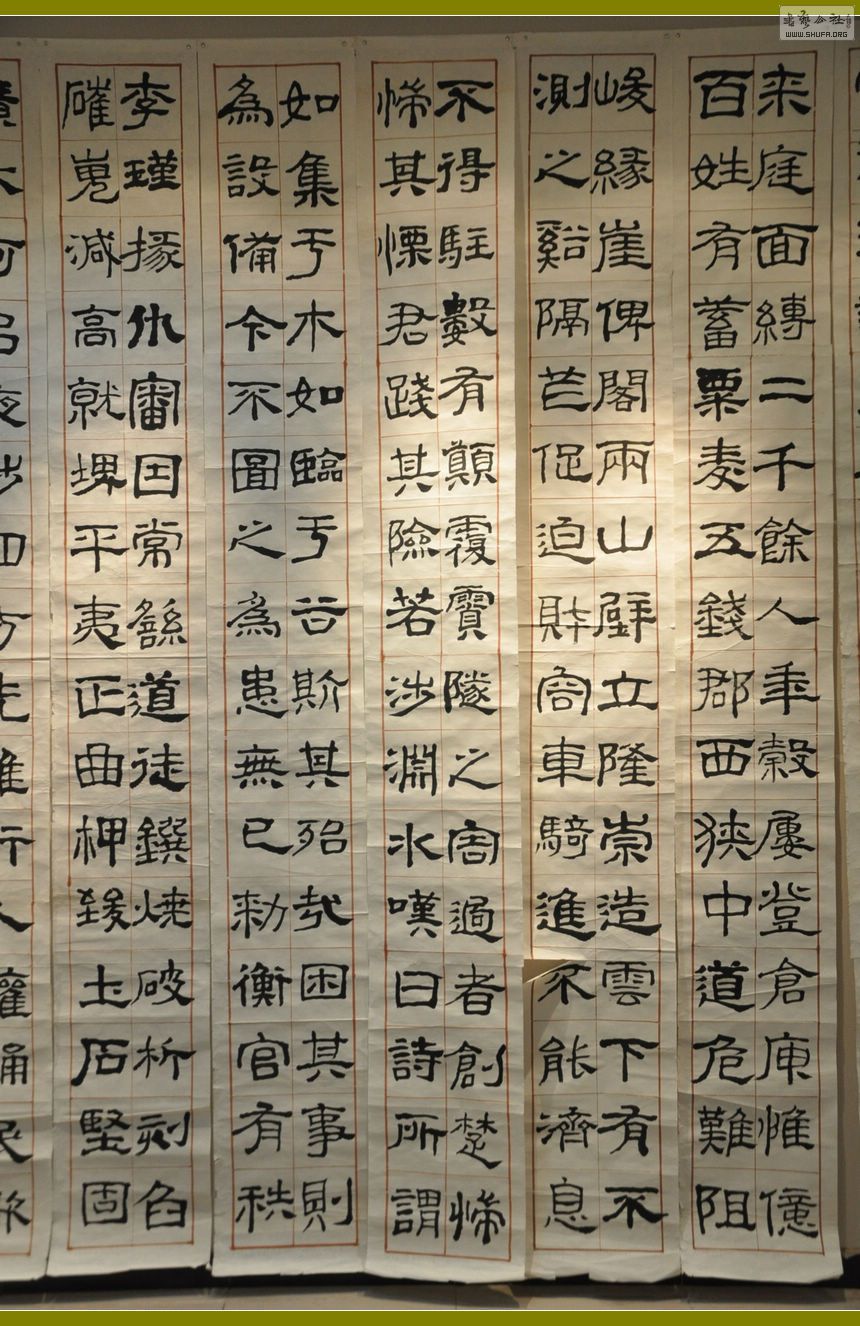 来庭面縛二千餘人年穀屢登倉庾惟億
百姓有蓄粟麦五錢郡西狭中道危難阻
峻緣崖俾閣兩山壁立隆崇造雲下有不
測之谿隔芒促迫財容車騎進不能濟息
不得駐數有顛覆霣隧之害過者創楚惴
惴其慄君踐其險若涉淵水嘆曰詩所謂
如集于木如臨于谷斯其殆哉困其事則
為設備今不圖之為患無已勑衡官有秩
李瑾掾仇審因常繇道徒鐉燒破析刻臽
磪嵬減高就埤平夷正曲柙致土石堅固
WWW.SHUFA.ORG